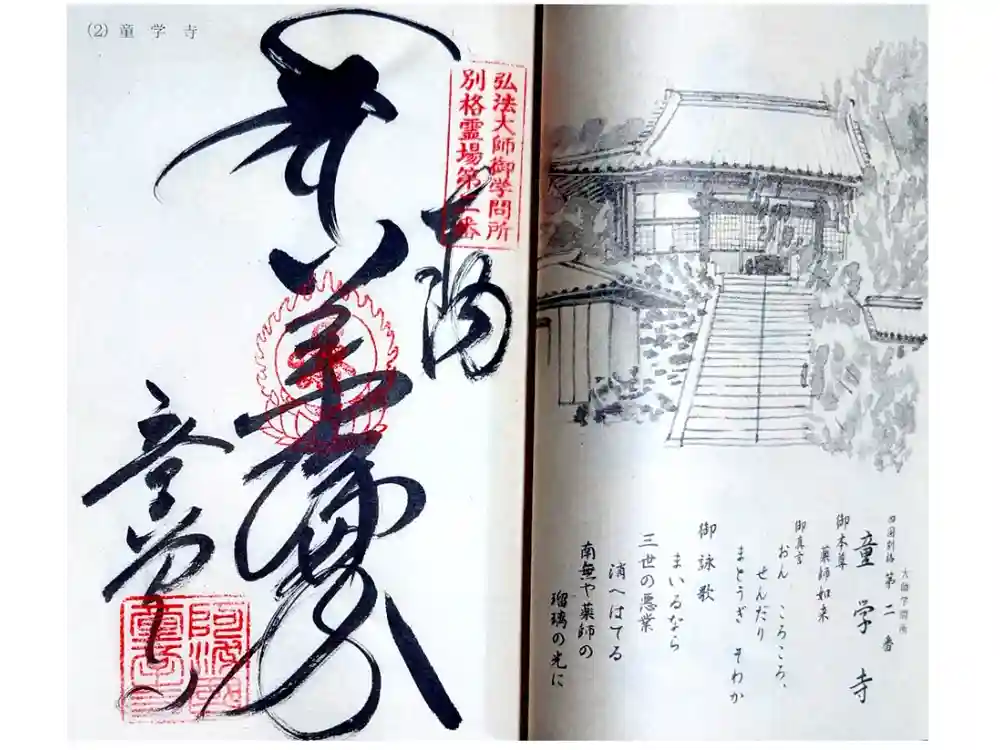 (2) 童学寺
弘法大師御学問所
別格霊場第二番
奉納
薬師如来
童学寺
大師学問所
四国別格 第二番
童学寺
御本尊
薬師如来
御真言
おん ころころ、
せんだり
まとうぎ そわか
御詠歌
まいるなら
三世の悪業
消へはてる
南無や薬師の
瑠璃の光に